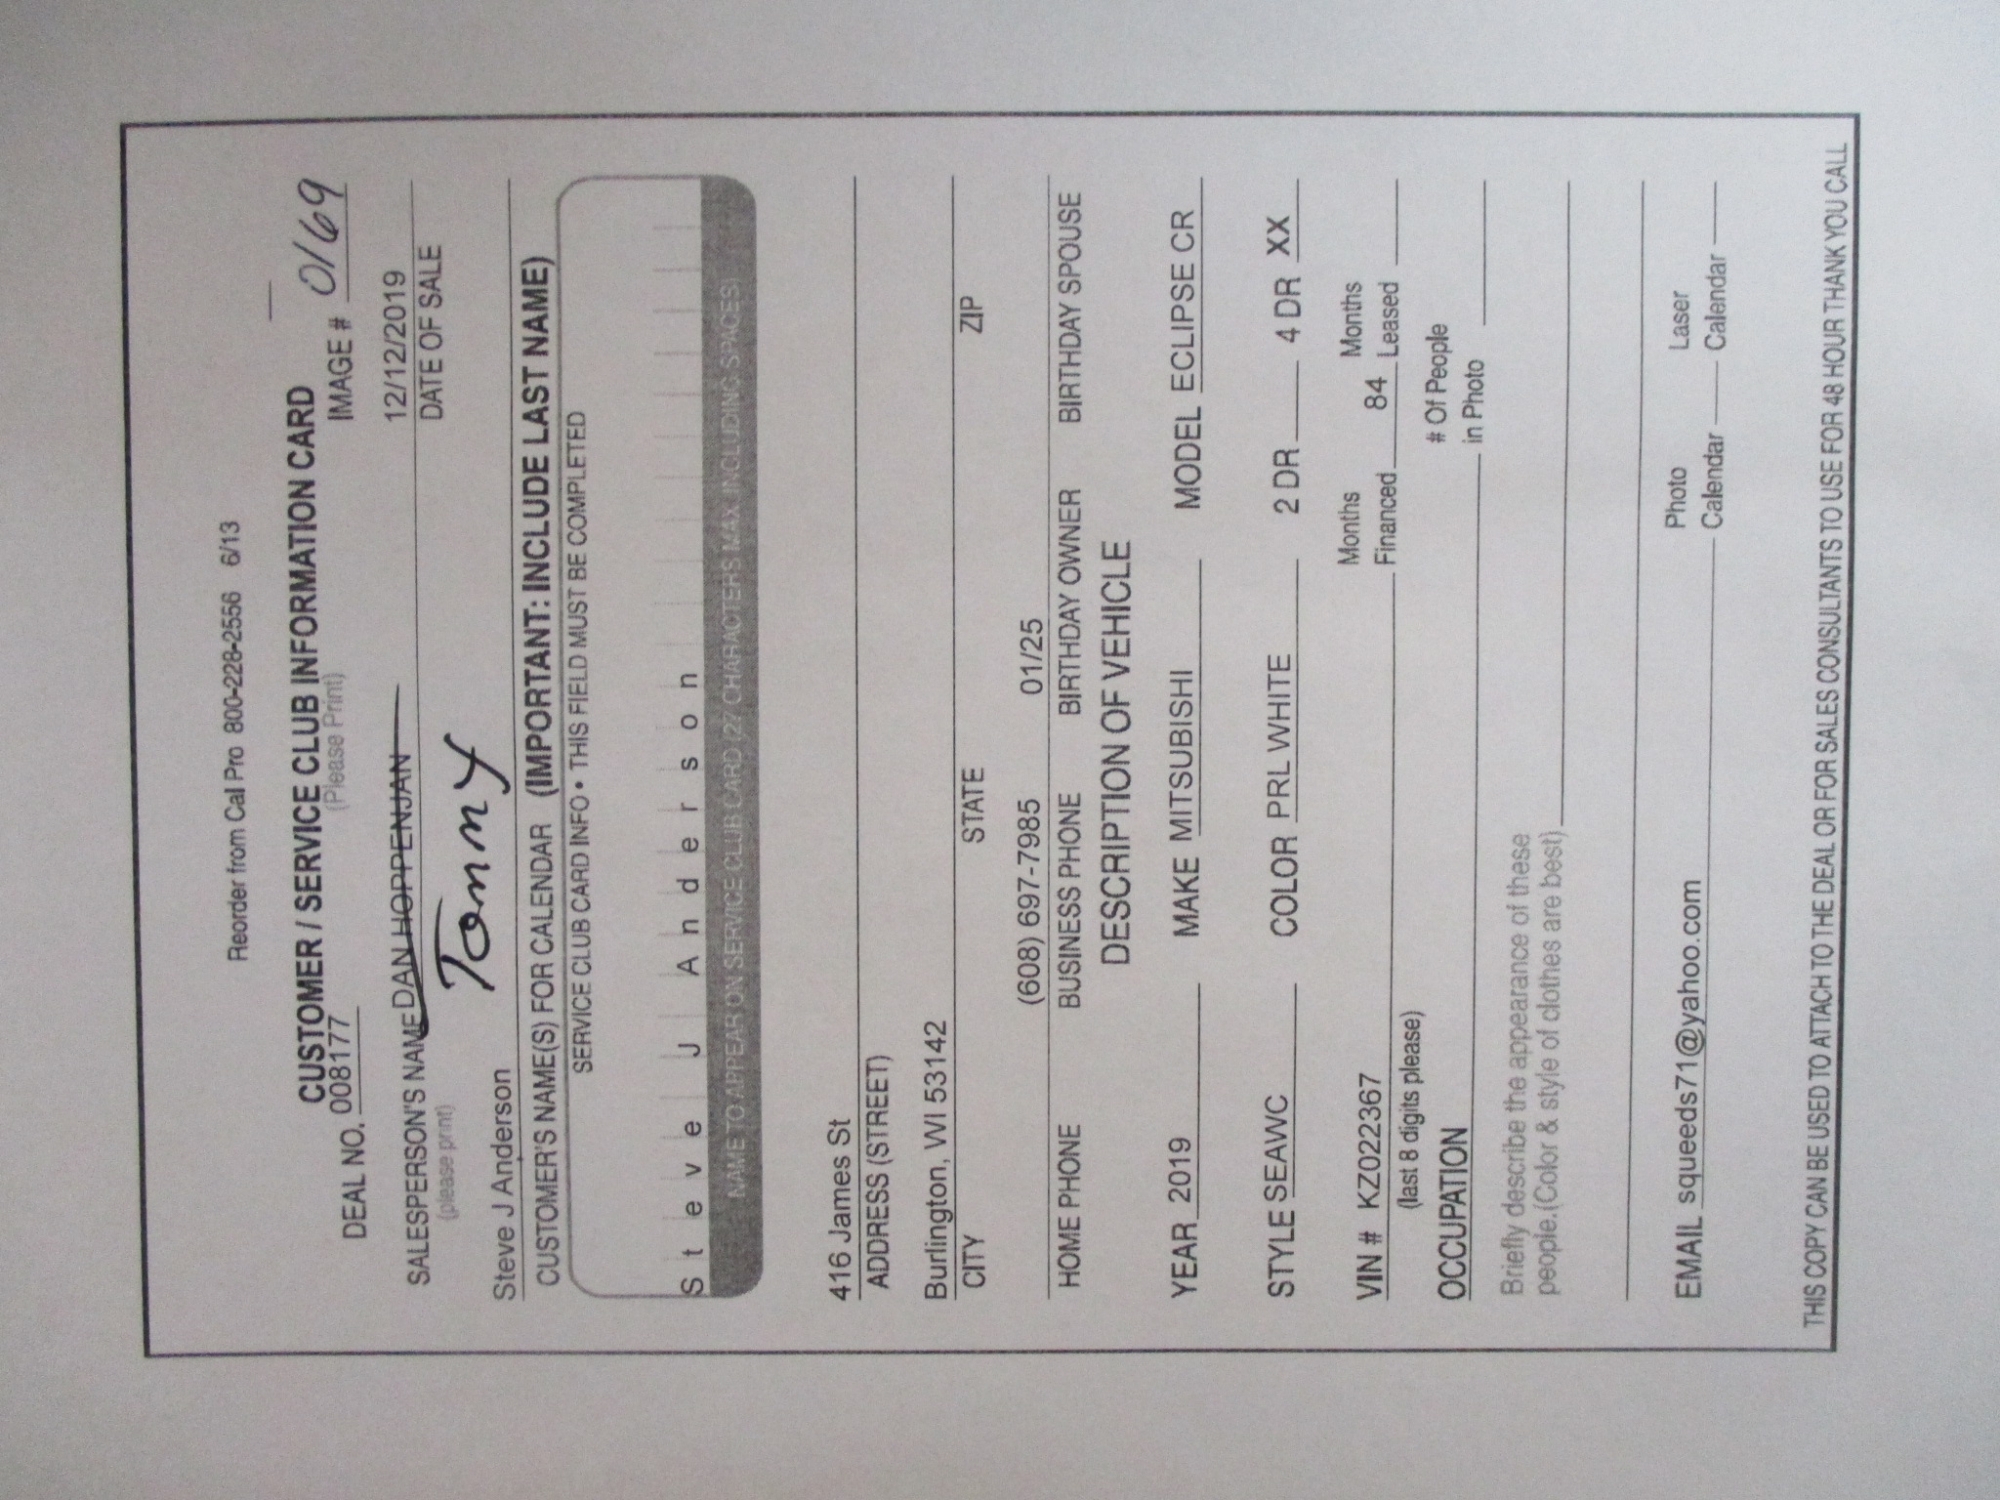 Reorder from Cal Pro 800-228-2556 6/13
CUSTOMER / SERVICE CLUB INFORMATION CARD
(Please Print)
DEAL NO. 008177 IMAGE # 0169
SALESPERSON'S NAME DAN HOPPENJAN 12/12/2019
(please print) Tommy DATE OF SALE
Steve J Anderson
CUSTOMER'S NAME(S) FOR CALENDAR (IMPORTANT: INCLUDE LAST NAME)
SERVICE CLUB CARD INFO • THIS FIELD MUST BE COMPLETED
Steve J Anderson
NAME TO APPEAR ON SERVICE CLUB CARD (27 CHARACTERS MAX INCLUDING SPACES)
416 James St
ADDRESS (STREET)
Burlington, WI 53142
CITY STATE ZIP
(608) 697-7985 01/25
HOME PHONE BUSINESS PHONE BIRTHDAY OWNER BIRTHDAY SPOUSE
DESCRIPTION OF VEHICLE
YEAR 2019 MAKE MITSUBISHI MODEL ECLIPSE CR
STYLE SEAWC COLOR PRL WHITE 2 DR 4 DR XX
Months Months
VIN # KZ022367 Financed 84 Leased
(last 8 digits please) # Of People
OCCUPATION in Photo
Briefly describe the appearance of these
people.(Color & style of clothes are best)
Photo Laser
EMAIL squeeds71@yahoo.com Calendar Calendar
THIS COPY CAN BE USED TO ATTACH TO THE DEAL OR FOR SALES CONSULTANTS TO USE FOR 48 HOUR THANK YOU CALL